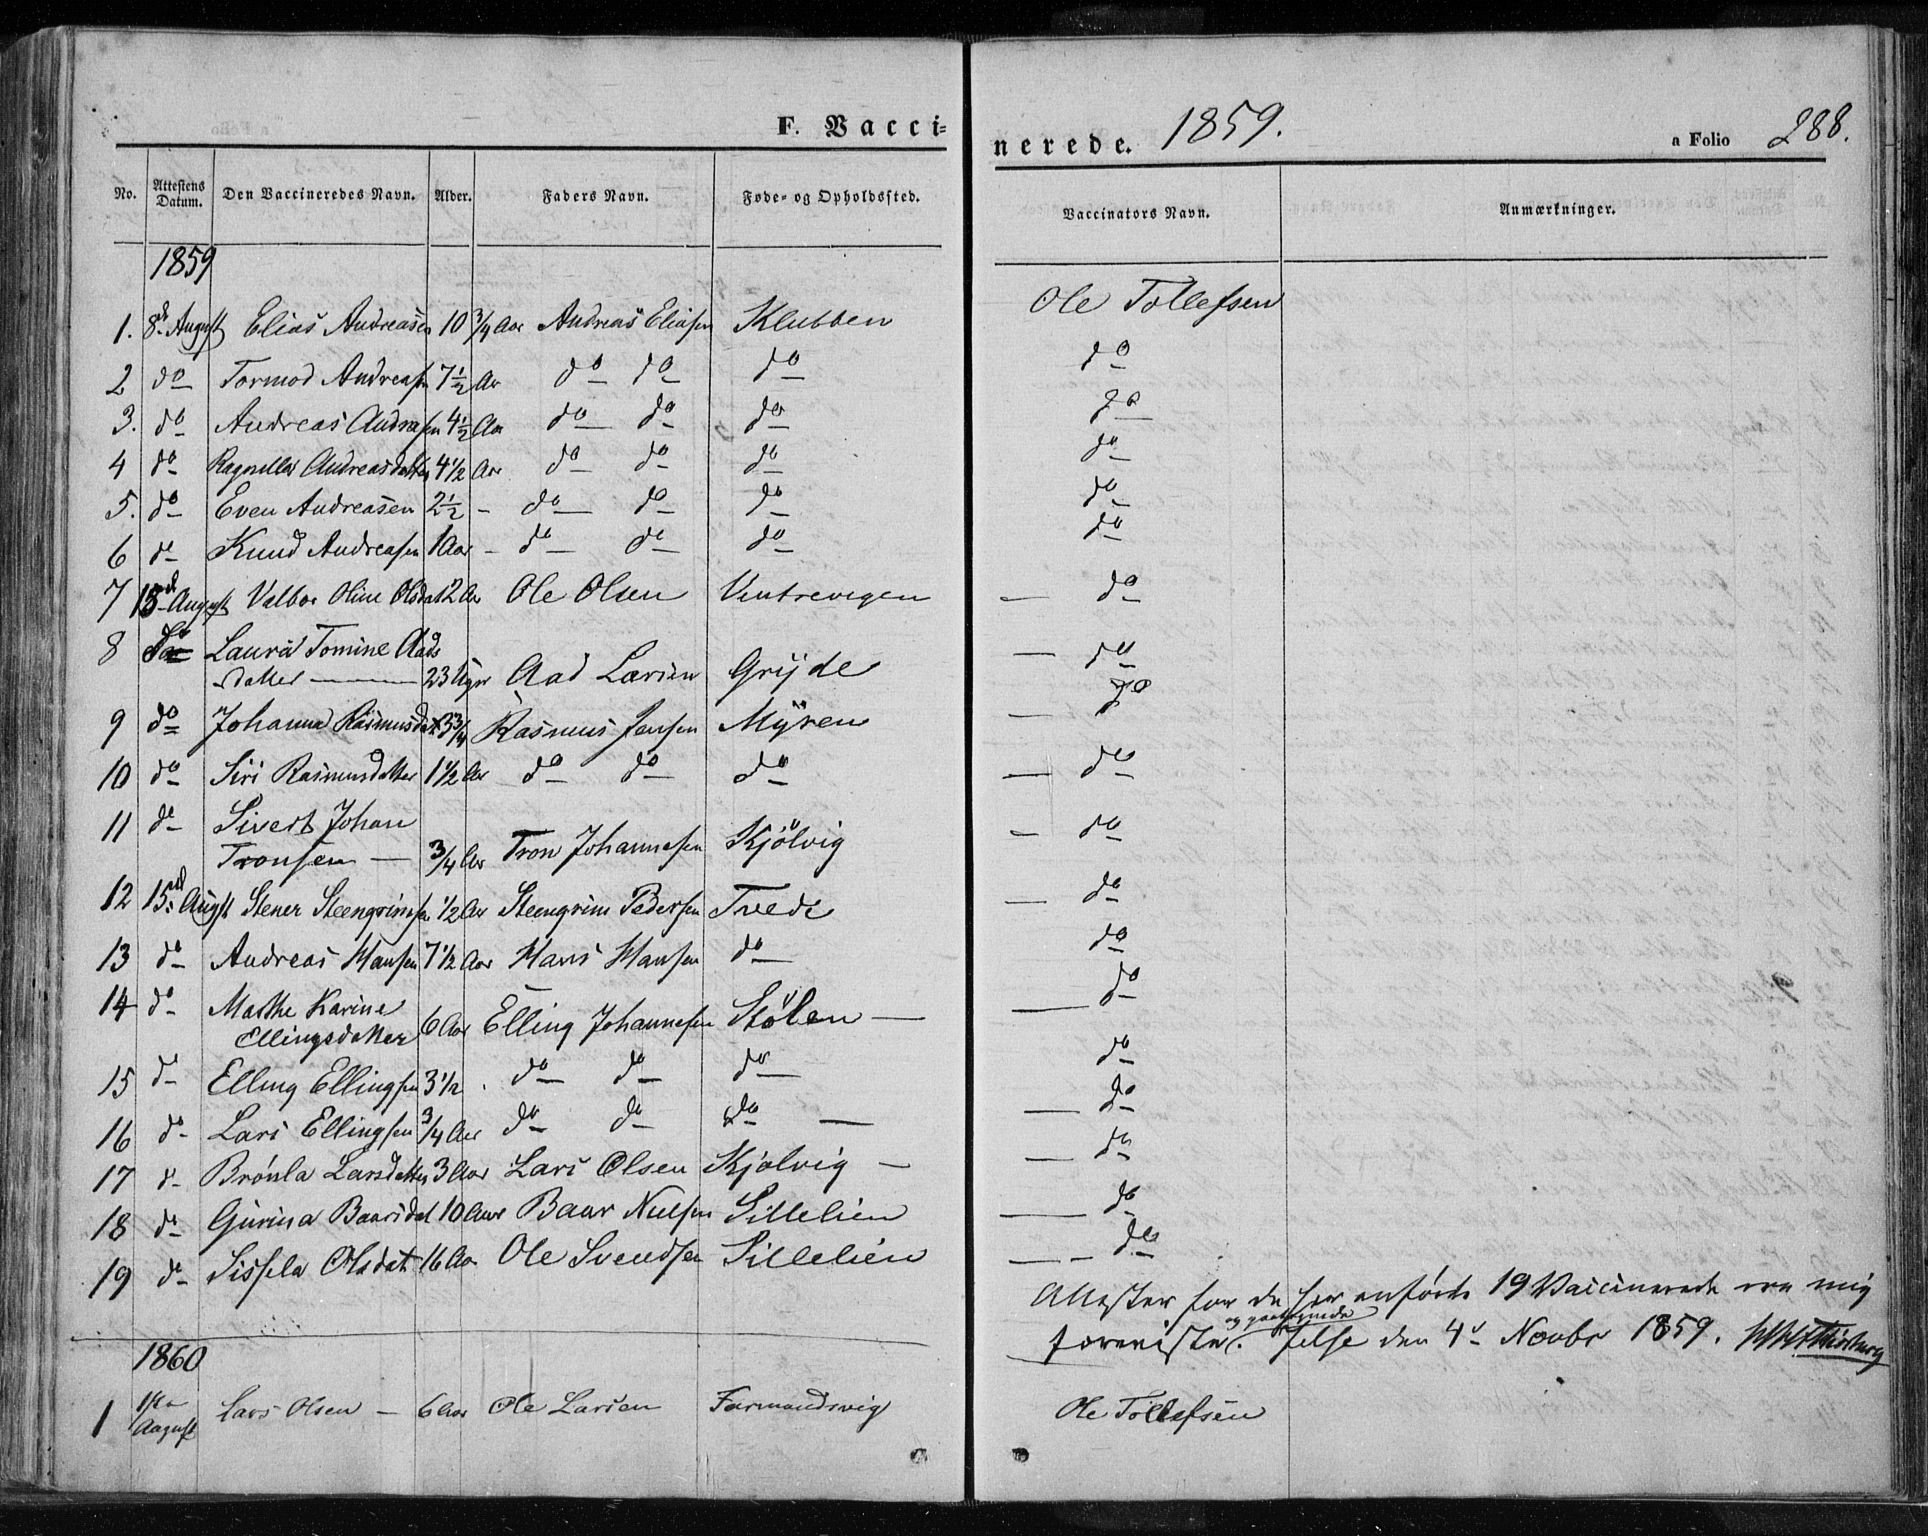 F. Vacci-
nerede. 1859. a Folio 288.
No. Attestens Datum. Den Vaccineredes Navn. Alder. Faders Navn. Føde- og Opholdssted. Vaccinators Navn. Anmærkninger.
1859
1. 8de August Elias Andreasen 10 3/4 Aar Andreas Eliasen Klubben Ole Tollefsen
2 do Tormod Andreasen 7 1/2 Aar do do do do
3. do Andreas Andreasen 4 1/2 Aar do do do do
4 do Ragnilla Andreasdatter 4 1/2 Aar do do do do
5. do Even Andreasen 2 1/2 - do do do do
6 do Knud Andreasen 1 Aar - do do do do
7 13de August Valbor Oline Olsdat 12 Aar Ole Olsen Ventrevigen — do
8 do Laura Tomine Aads
datter — 23 Uger Aad Larsen Grijde — do
9 do Johanna Rasmusdat 3 3/4 Rasmus Jensen Myren — do
10 do Siri Rasmusdatter 1 1/2 Aar do do do — do
11 do Sivert Johan
Tronsen — 3/4 Aar Tron Johannesen Kjölvig — do
12 15de Augst Stener Steengrimsen 1/2 Aar Steengrim Pedersen Tvede — do
13 do Andreas Hansen 7 1/2 Aar Hans Hansen do do
14 do Marthe Karine
Ellingsdatter 6 Aar Elling Johannesen Stölen — — do
15 do Elling Ellingsen 3 1/2 . do do do do
16 do Lars Ellingsen 3/4 Aar do do do — — do
17 do Brónla Larsdatter 3 Aar Lars Olsen Kjolvig — — do
18 do Gurina Baarsdat 10 Aar Baar Nielsen Sillelien — do
19 do Sissela Olsdat 16 Aar Ole Svendsen Sillelien — do
Attester for de her anførte 19 Vaccinerede ere mig
og godkjendte
foreviste. Jelse den 4de Novbr 1859.
1860
1 August Lars Olsen — 6 Aar Ole Larsen Formandsvig Ole Tollefsen